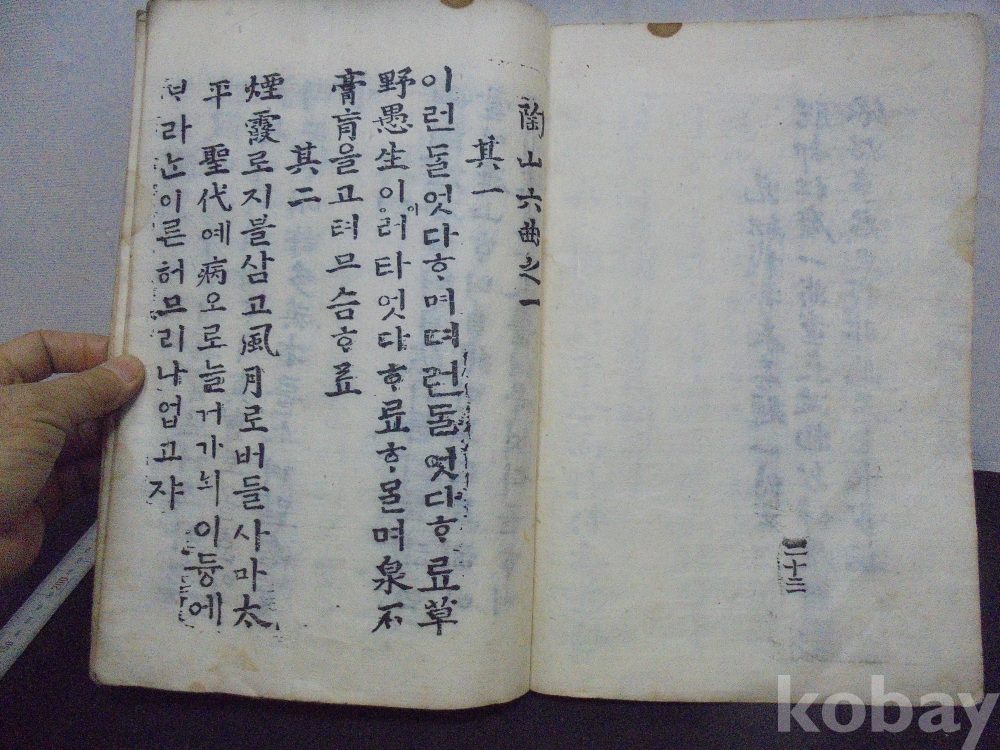 二十二
陶山六曲之一
其一
이런ᄃᆞᆯ엇다ᄒᆞ며뎌런ᄃᆞᆯ엇다ᄒᆞ료草
野愚生이이러타엇다ᄒᆞ료ᄒᆞᄆᆞᆯ며泉石
膏肓을고텨므슴ᄒᆞ료
其二
煙霞로지블삼고風月로버들사마太
平 聖代예病오로늘거가뇌이듕에
ᄇᆞ라ᄂᆞᆫ이른허므리나업고쟈
kobay